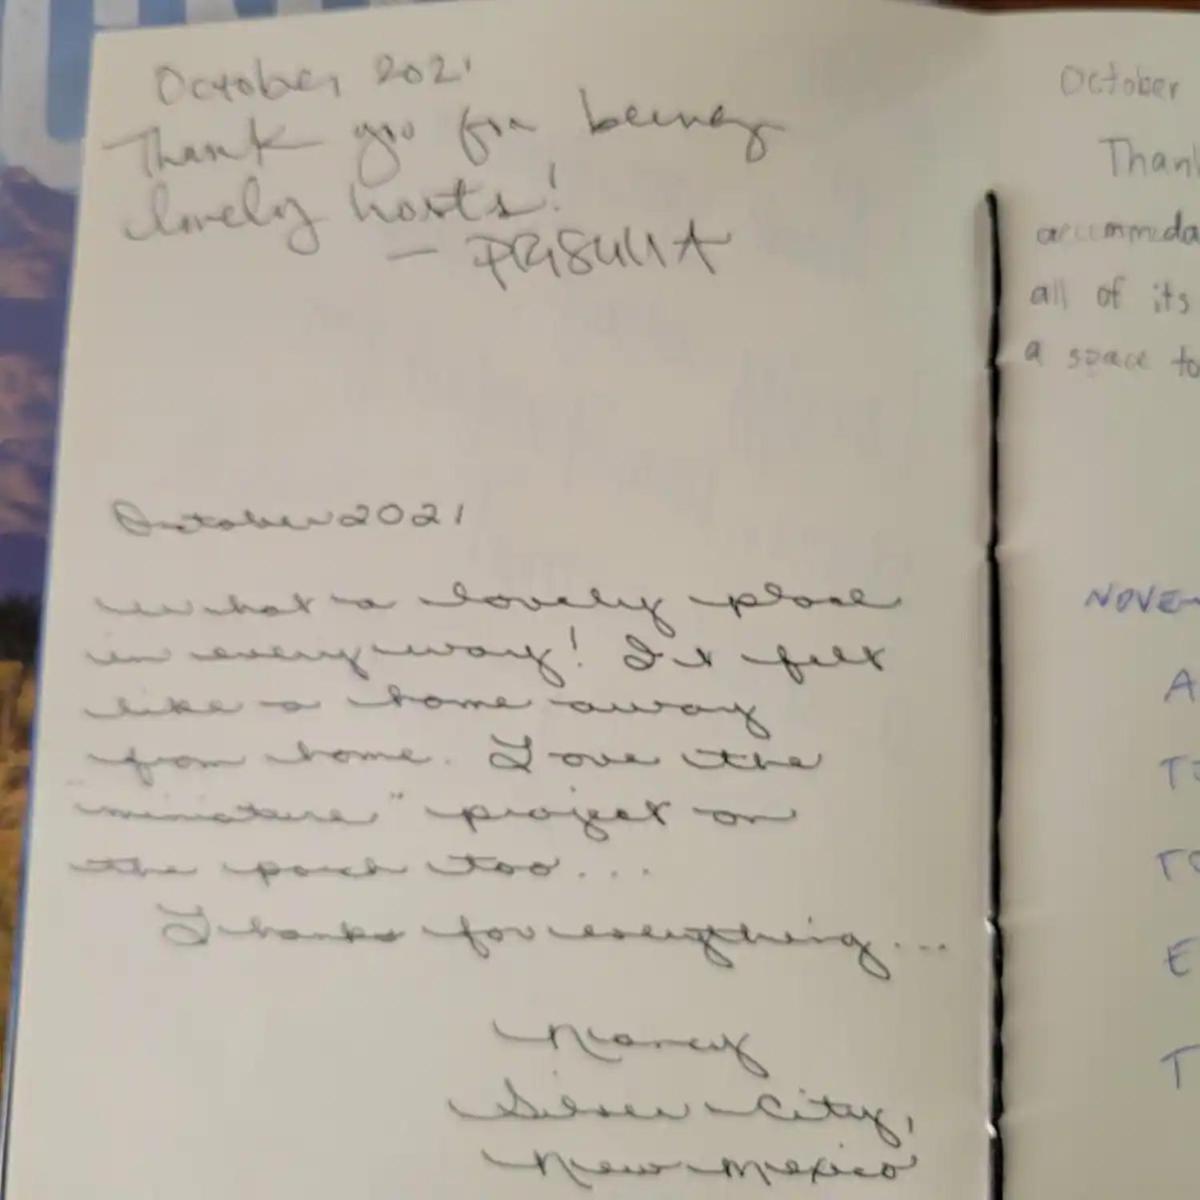 October 2021
Thank you for being
lovely hosts!
- PRISCILLA
October 2021
What a lovely place
in every way! It felt
like a home away
from home. Love the
"miniature" project on
the porch too...
Thanks for everything...
Nancy
Silver City,
New Mexico
October
Thank
accommoda
all of its
a space to
NOVE
A
T
TO
E
T